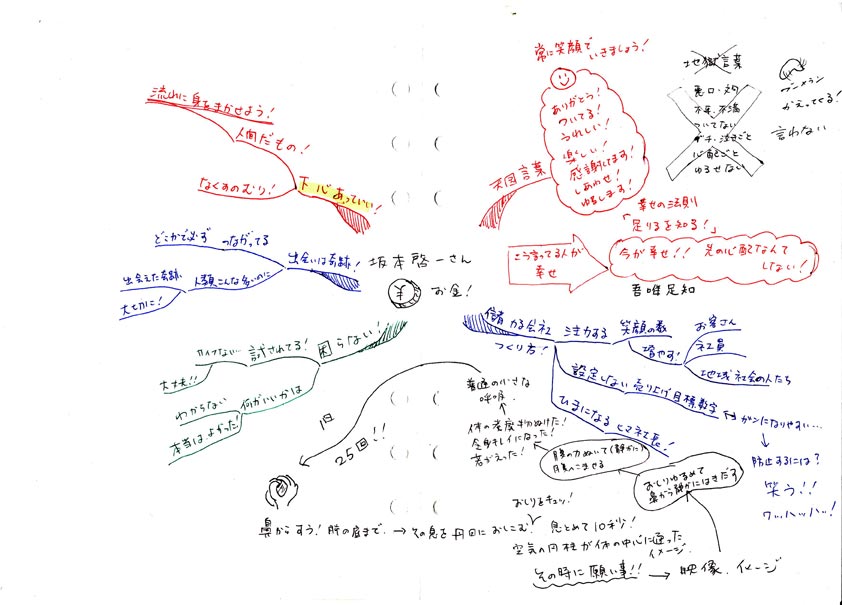 流れに身をまかせよう！
人間だもの！
なくすのむり！
下心あっていい！
どこかで必ず つながってる
出会いは奇跡！
出会えた奇跡
人類こんな多いのに
大切に！
坂本啓一さん
¥
お金！
困らない！
試されてる！
大丈夫！！
何がいいかは
わからない
本当はよかった
常に笑顔で
いきましょう！
天国言葉
ありがとう！
ついてる！
うれしい！
楽しい！
感謝してます！
しあわせ！
ゆるします！
地獄言葉
悪口・文句
不平・不満
ついてない
グチ・泣きごと
心配ごと
ゆるせない
ブーメラン
かえってくる！
言わない
幸せの法則
「足りるを知る！」
こう言ってる人が
幸せ
今が幸せ！！ 先の心配なんて
しない！
吾唯足知
儲かる会社
つくり方！
注力する
笑顔の数
増やす！
お客さん
社員
地域社会の人たち
設定しない 売り上げ目標数字
ガンになりやすい…
ひまになる ヒマネ社長！
防止するには？
笑う！！
ワッハッハッ！
普通の小さな
呼吸
体の老廃物ぬけた！
全身キレイになった！
若がえった！
腹の力ぬいて（静かに）
おしりゆるめて
鼻から静かにはきだす
1回
25回！！
おしりをキュッ！
鼻からすう！ 肺の底まで → その息を丹田におしこむ
息とめて10秒！
空気の円柱が体の中心に通った
イメージ
その時に願い事！！ → 映像、イメージ